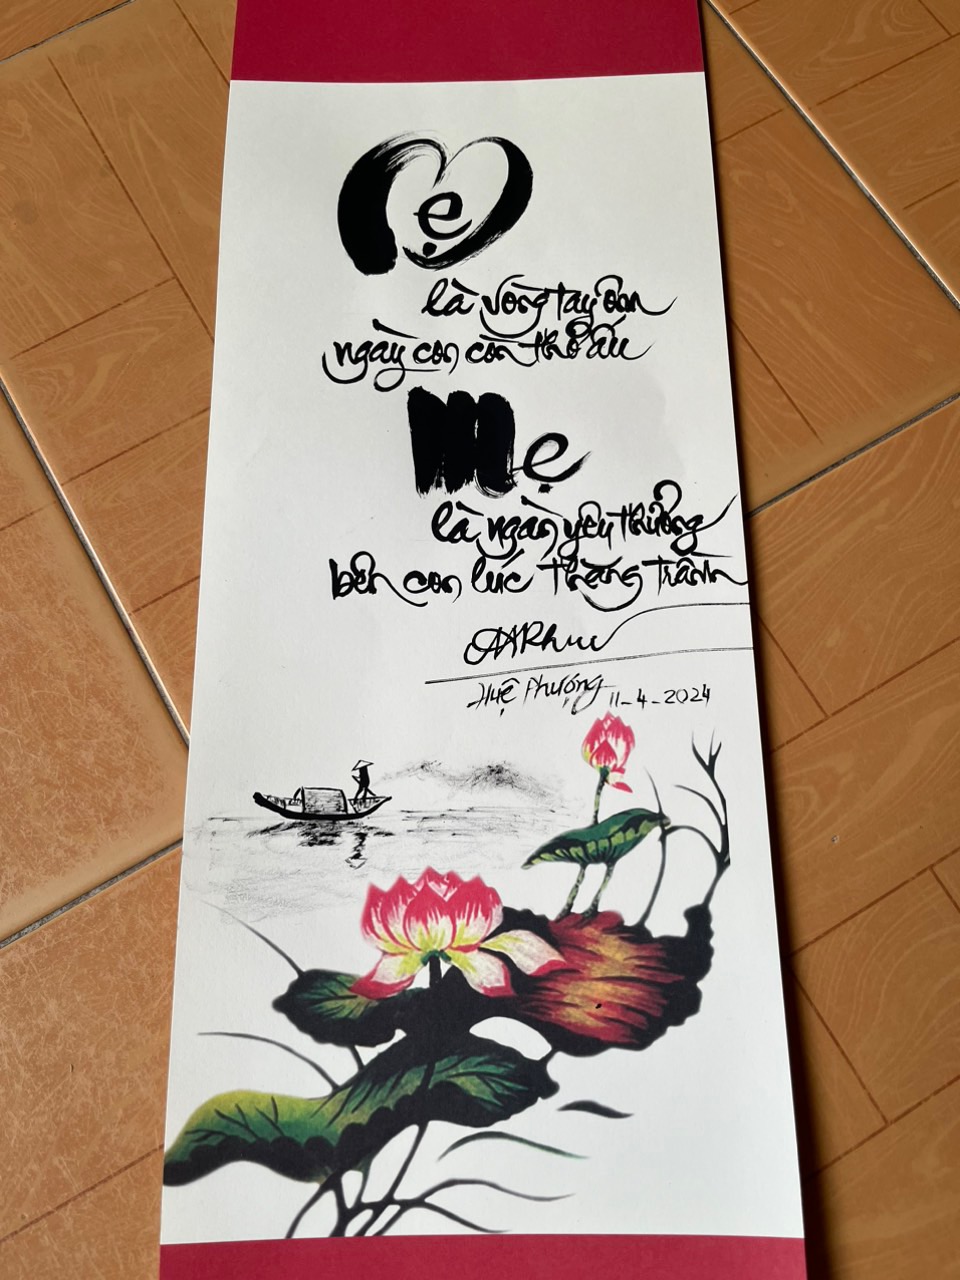 Mẹ
là vòng tay ôm
ngày con còn thơ ấu
Mẹ
là ngàn yêu thương
bên con lúc thăng trầm
Huệ Phượng 11-4-2024